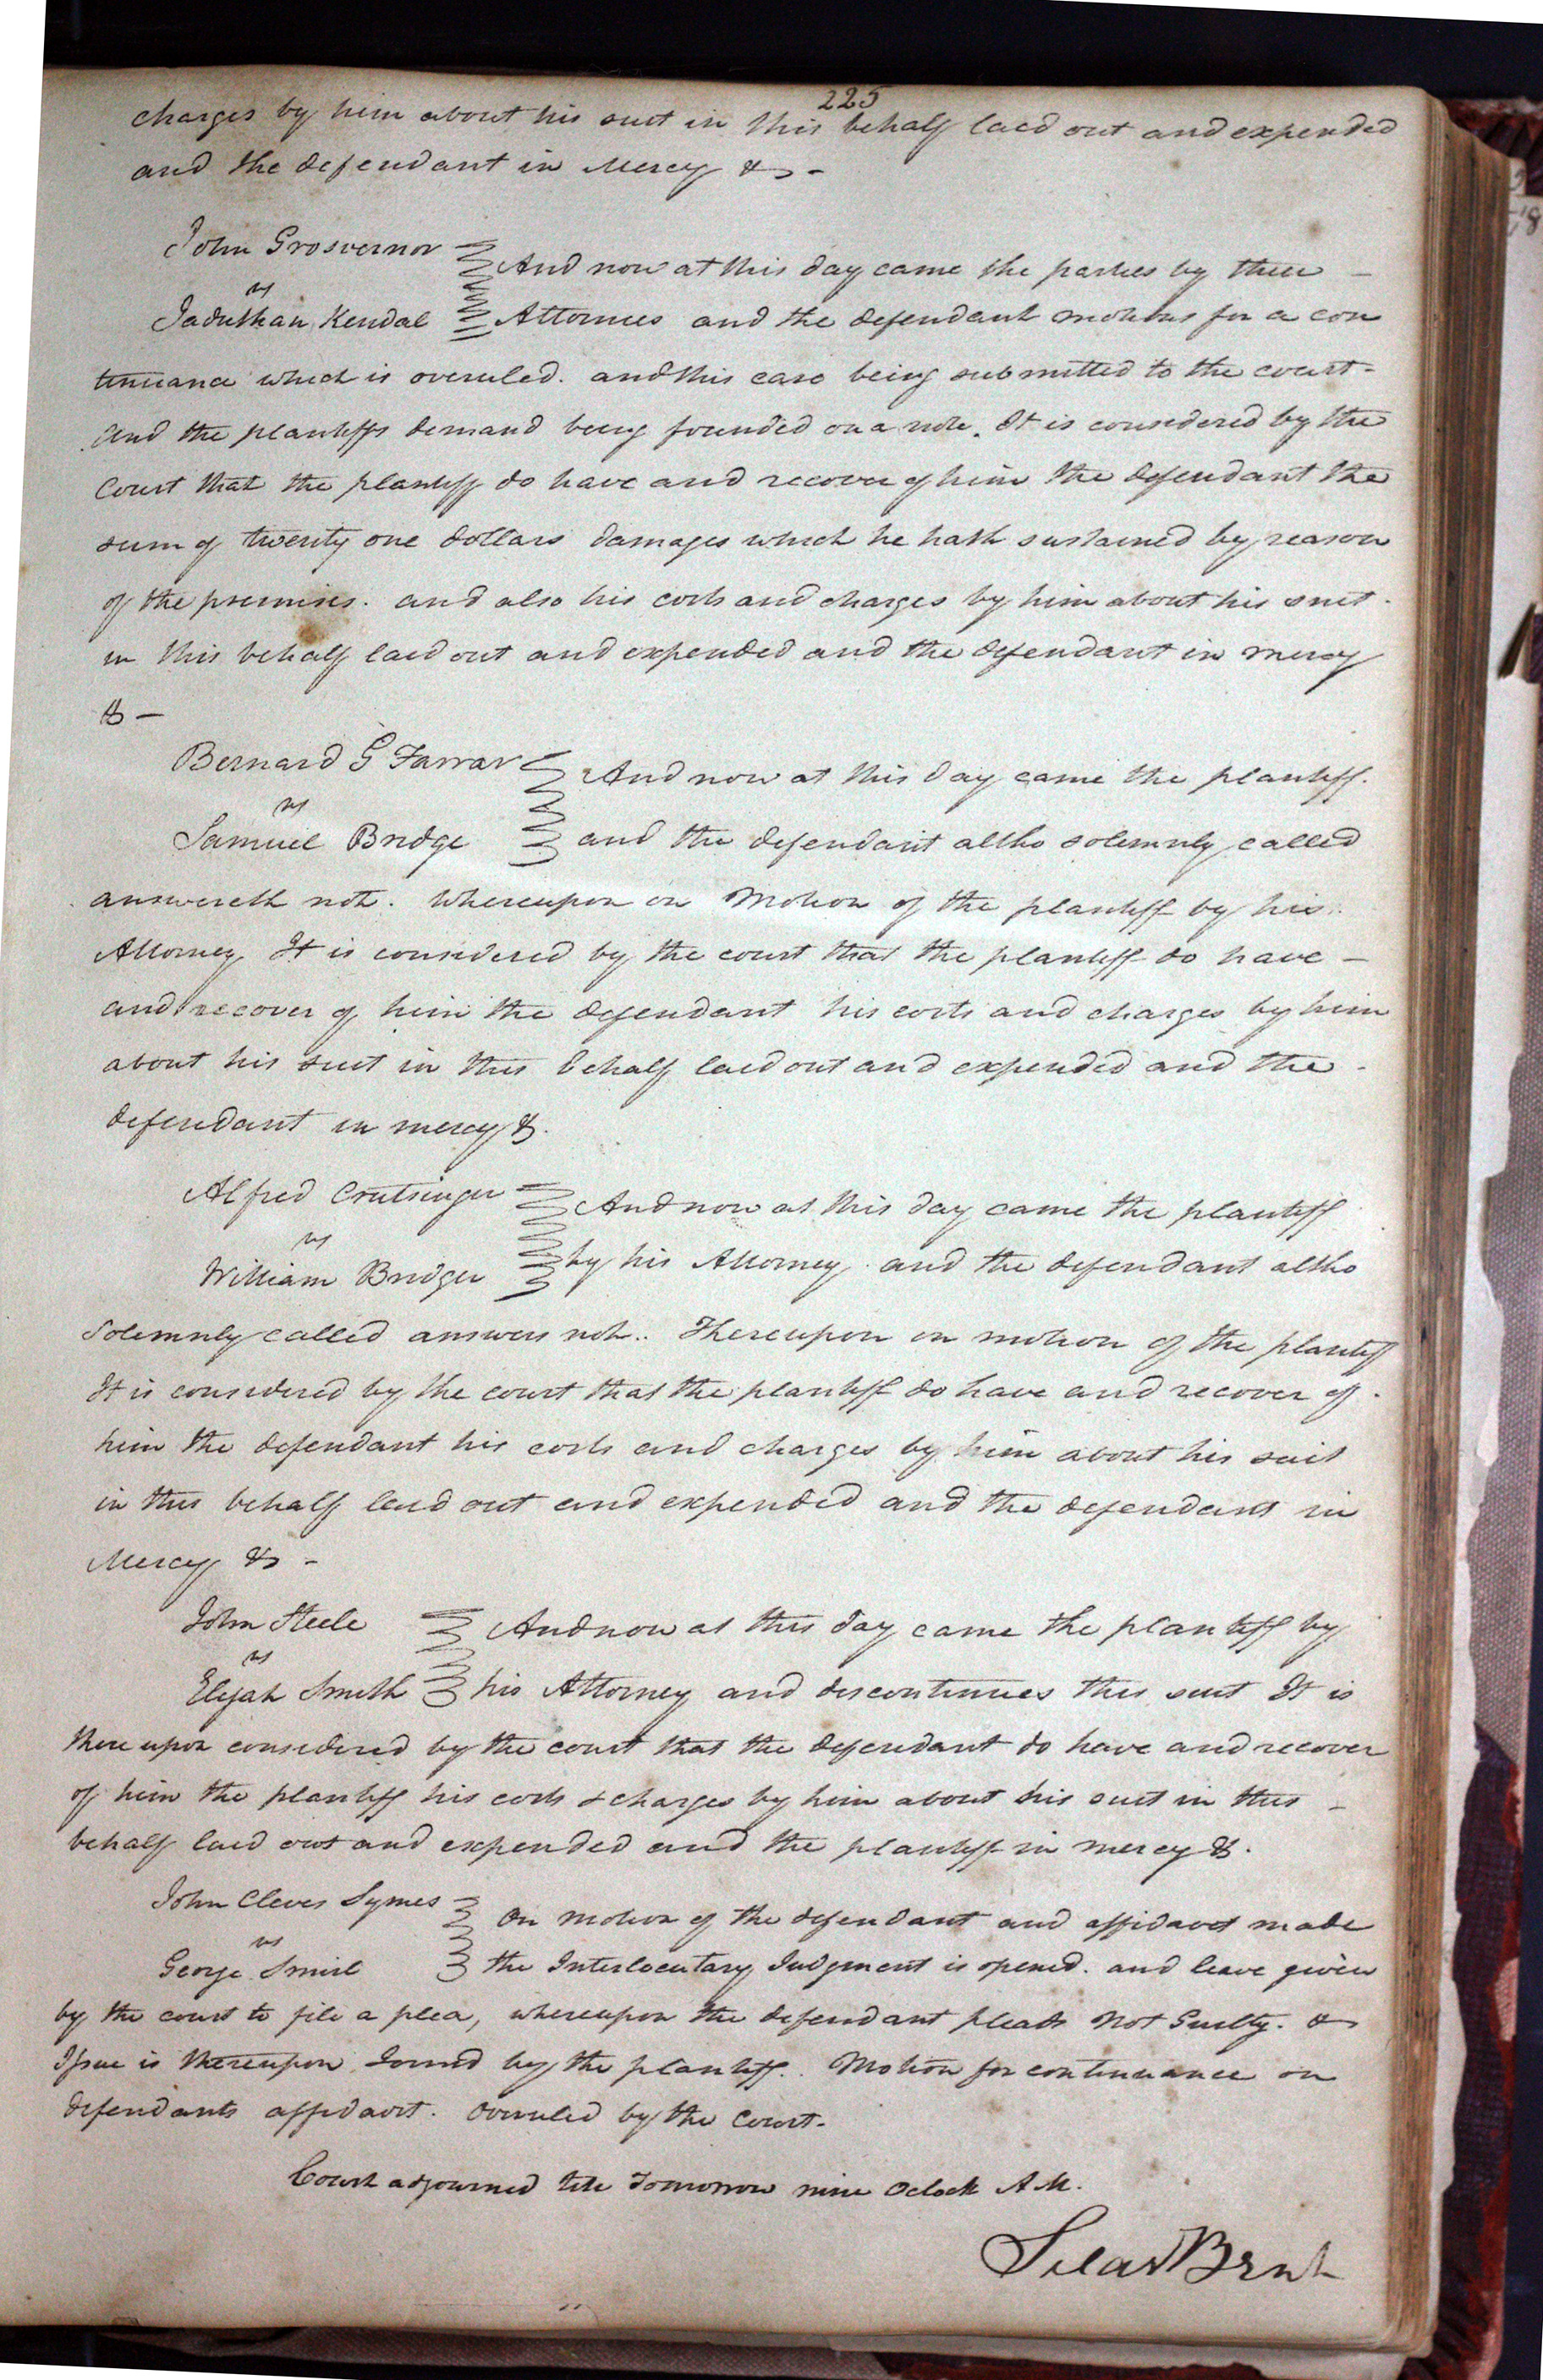 225
charges by him about his suit in this behalf laid out and expended
and the defendant in Mercy &c -
John Grosvernor
vs
Jaduthan Kendal
And now at this day came the parties by their -
Attornies and the defendant motions for a con
tinuance which is overuled. and this case being submitted to the court -
and the plantiffs demand being founded on a note. It is considered by the
Court that the plantiff do have and recover of him the defendant the
sum of twenty one dollars damages which he hath sustained by reason
of the premises. and also his costs and charges by him about his suit -
in this behalf laid out and expended and the defendant in mercy
&c -
Bernard G Farrar
vs
Samuel Bridge
And now at this day came the plantiff.
and the defendant altho solemnly called
answereth not. Whereupon on Motion of the plantiff by his
Attorney It is considered by the court that the plantiff do have -
and recover of him the defendant his costs and charges by him
about his suit in this behalf laid out and expended and the -
defendant in mercy &c.
Alfred Crutsinger
vs
William Bridger
And now at this day came the plantiff
by his Attorney. and the defendant altho
Solemnly called answers not.. Thereupon on motion of the plantiff
It is considered by the court that the plantiff do have and recover of -
him the defendant his costs and charges by him about his suit
in this behalf laid out and expended and the defendant in
Mercy &c -
John Steele
vs
Elijah Smith
And now at this day came the plantiff by
his Attorney and discontinues this suit It is
there upon considered by the court that the defendant do have and recover
of him the plantiff his costs & charges by him about his suit in this -
behalf laid out and expended and the plantiff in mercy &c.
John Cleves Symes
vs
George Smirl
On motion of the defendant and affidavit made
the Interlocutary Judgment is opened. and leave given
by the court to file a plea, whereupon the defendant pleads Not Guilty. &
Issue is thereupon Joined by the plantiff.. Motion for continuance on
defendants affidavit. overuled by the Court-
Court adjourned till Tomorrow nine Oclock A M.
Silas Bent